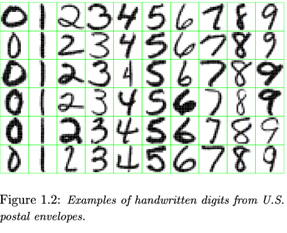 0 1 2 3 4 5 6 7 8 9
0 1 2 3 4 5 6 7 8 9
0 1 2 3 4 5 6 7 8 9
0 1 2 3 4 5 6 7 8 9
0 1 2 3 4 5 6 7 8 9
0 1 2 3 4 5 6 7 8 9
Figure 1.2: Examples of handwritten digits from U.S.
postal envelopes.